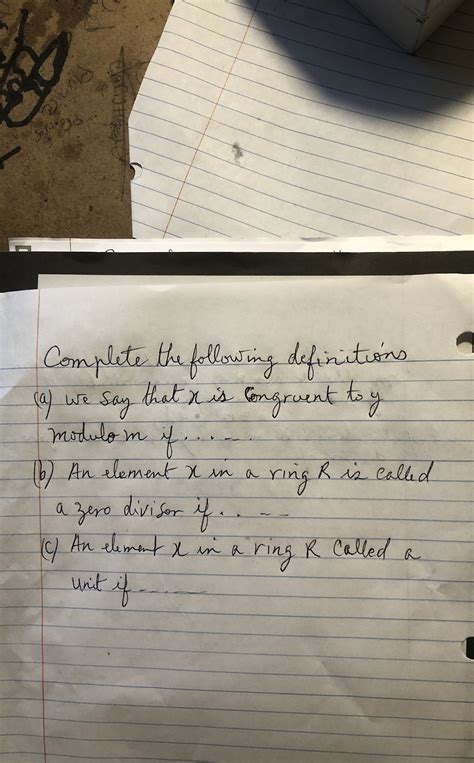 Complete the following definitions
(a) we say that x is congruent to y
modulo m if .....
(b) An element x in a ring R is called
a zero divisor if .. --
(c) An element x in a ring R called a
unit if ------